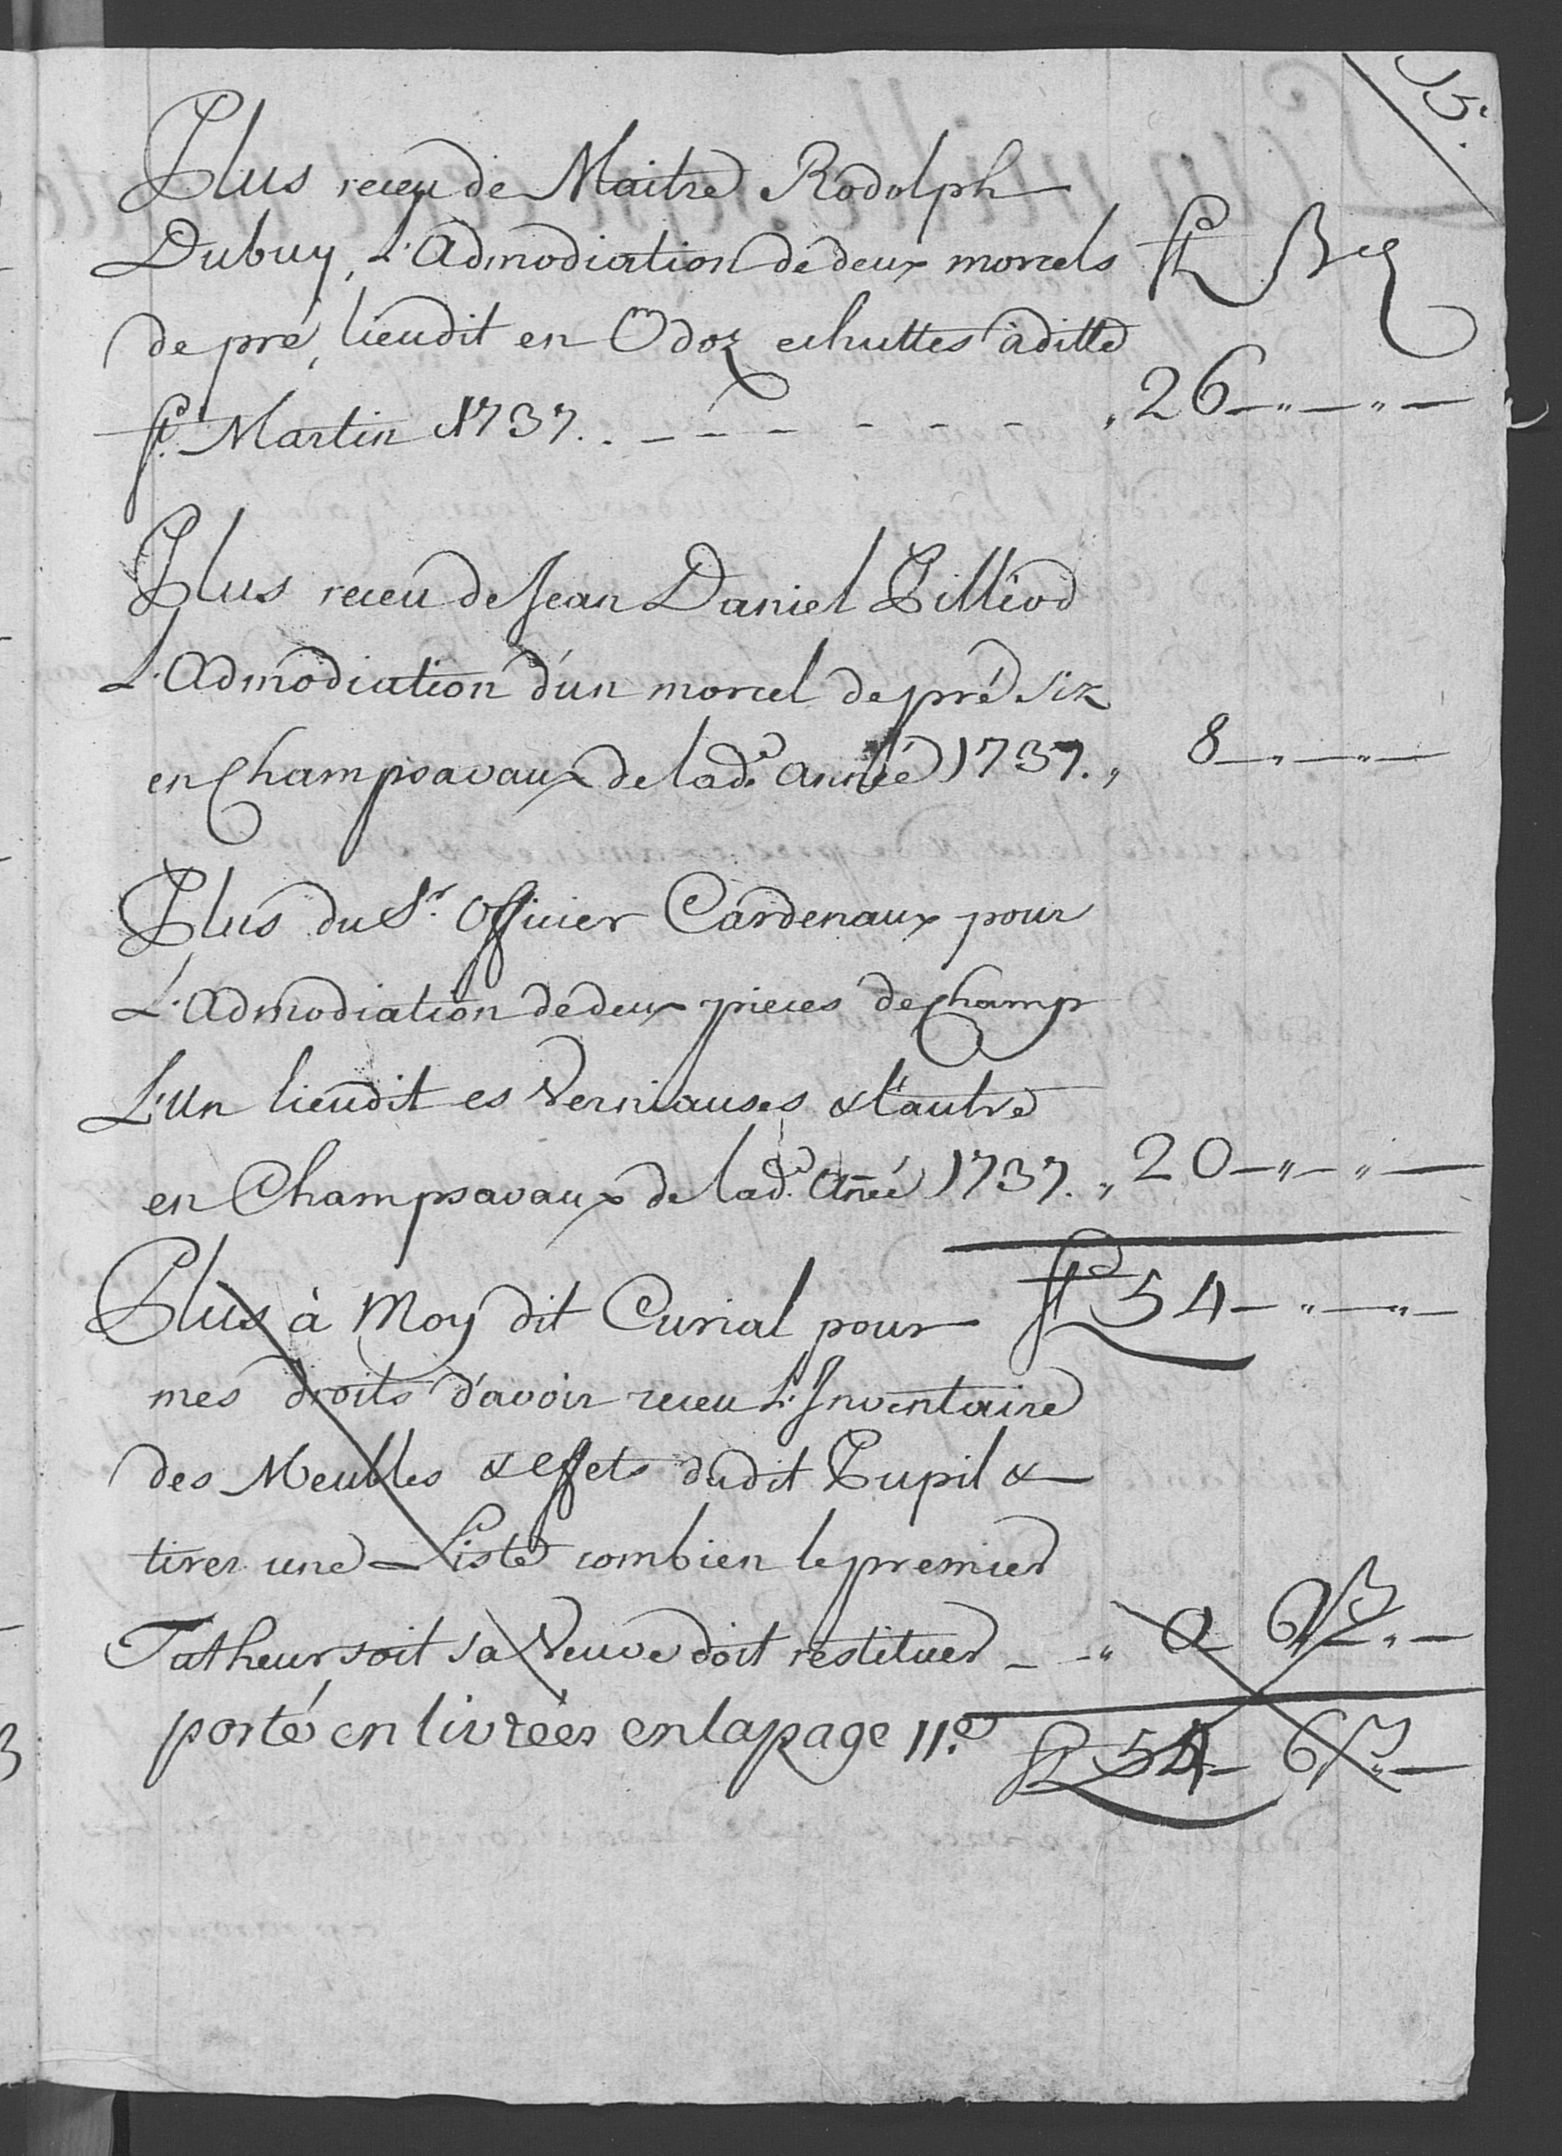 15.
Plus receu de Maitre Rodolph
Dubuy, L'Admodiation de deux morcels
de pré, lieudit en Odoz echuttes à ditte
St. Martin 1737. 26
Plus receu de Jean Daniel Pilliod
L'Admodiation d'un morcel de pré siz
en Champsavaux de lad.e année 1737. 8
Plus du Sr. Officier Cardenaux pour
L'Admodiation de deux pieces de Champ
L'un lieudit es Verniauses & l'autre
en Champsavaux de lad.e Añeé 1737. 20
54
Plus à Moy dit Curial pour
mes droits d'avoir receu L'Inventaire
des Meubles & effets dudit Pupil &
tirer une Liste combien le premier
Tutheur, soit sa Veuve doit restituer 0 6
porté en livrées en la page 11.e
54 6